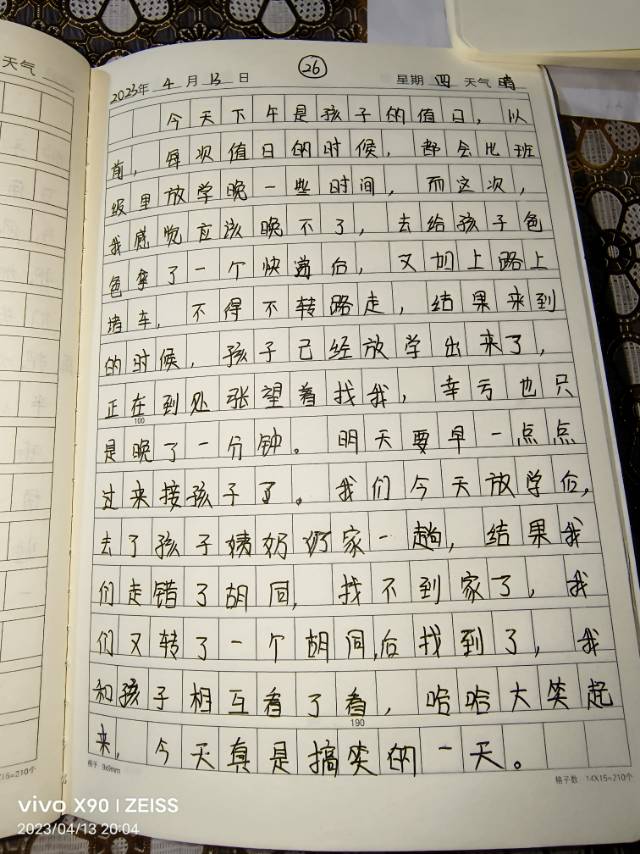 天气
2023年 4 月 13 日 26 星期 四 天气 晴
今天下午是孩子的值日，以
前，每次值日的时候，都会比班
级里放学晚一些时间，而这次，
我感觉应该晚不了，去给孩子色
色拿了一个快递后，又加上路上
堵车，不得不转路走，结果来到
的时候，孩子已经放学出来了，
正在到处张望着找我，幸亏也只
100
是晚了一分钟。明天要早一点点
过来接孩子了。我们今天放学后，
去了孩子姨奶奶家一趟，结果我
们走错了胡同，找不到家了，我
们又转了一个胡同，后找到了，我
和孩子相互看了看，哈哈大笑起
190
来，今天真是搞笑的一天。
格子 9x9mm 格子数 14X15=210个
X15=210个
vivo X90 | ZEISS
2023/04/13 20:04